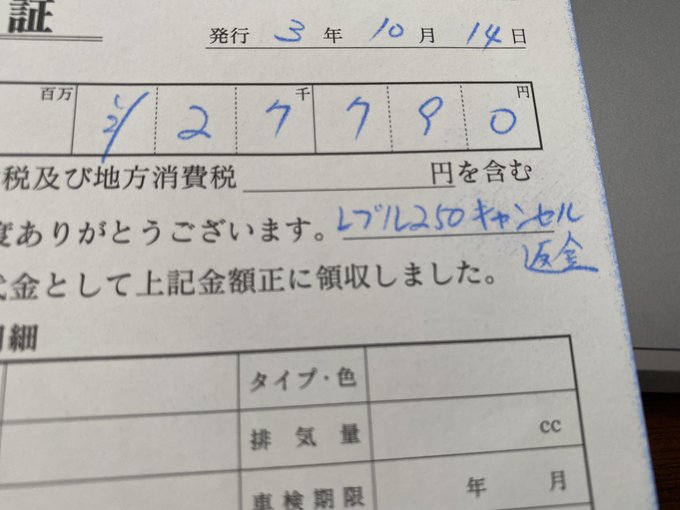 証
発行 3 年 10 月 14 日
百万 千 円
2 7 7 9 0
税及び地方消費税 円を含む
度ありがとうございます。レブル250キャンセル
返金
代金として上記金額正に領収しました。
明細
タイプ・色
排気量 cc
車検期限 年 月